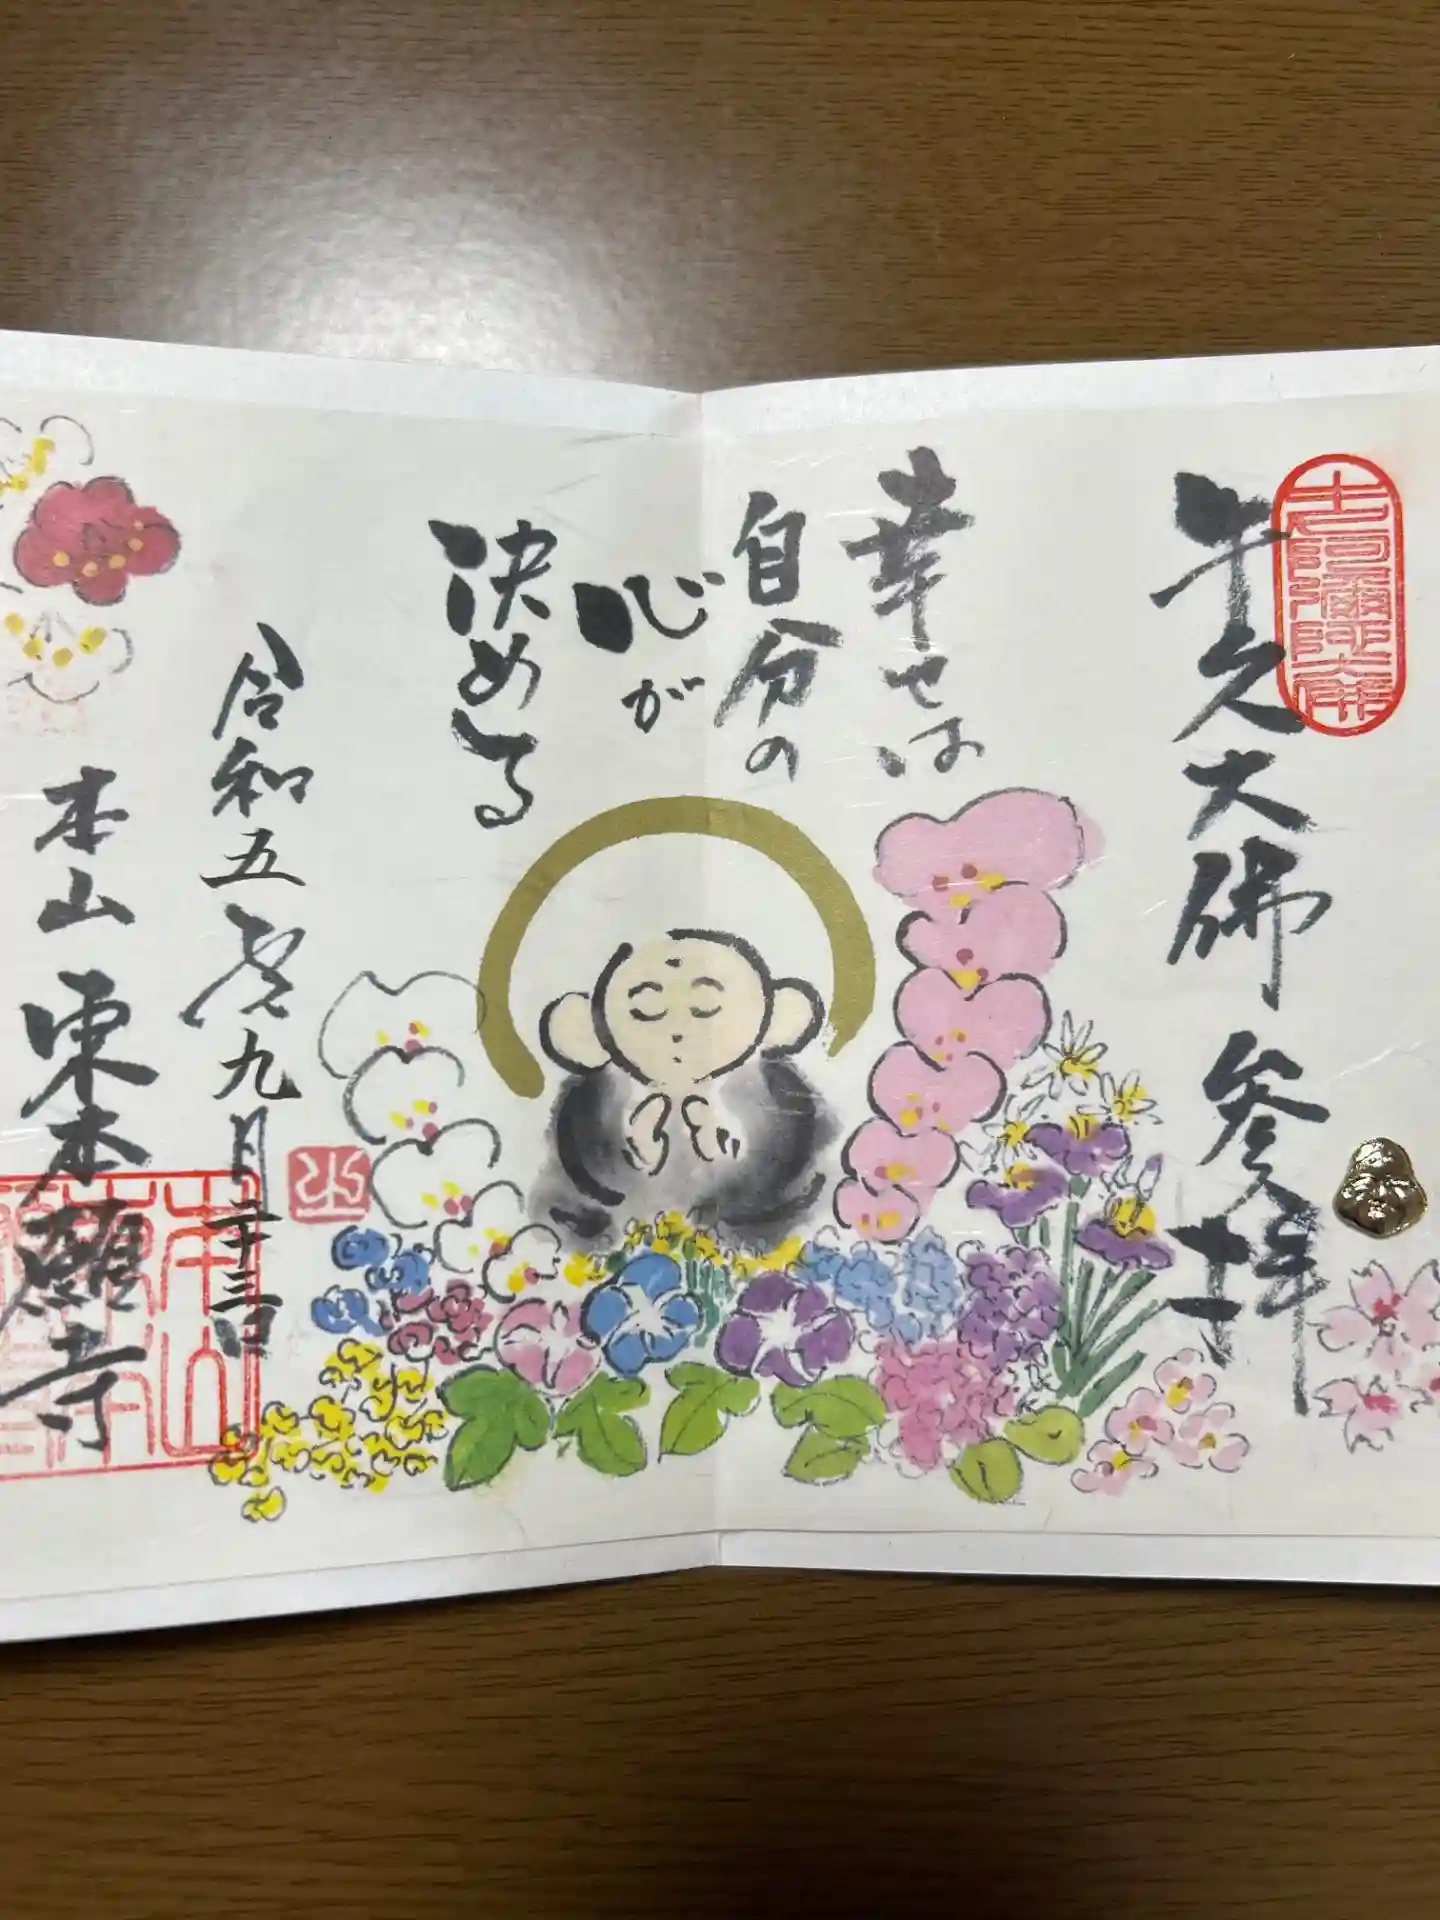 牛久大佛 参拝
幸せは
自分の
心が
決める
令和五年九月二十三日
本山 東本願寺